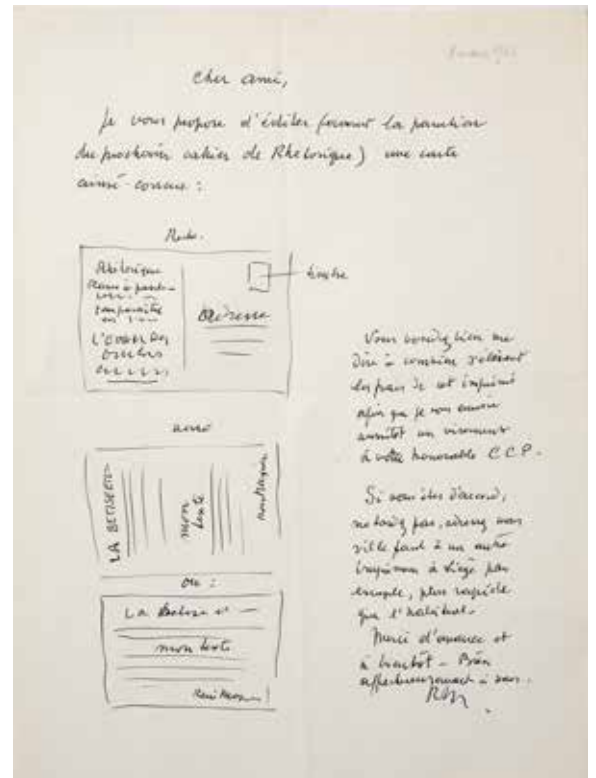 Cher ami,
Je vous propose d'éditer (avant la parution
du prochain cahier de Rhétorique) une carte
ainsi conçue :
Recto.
Rhétorique
timbre
adresse
verso
LA BETISE
mon
texte
ou :
La Bêtise
mon texte
Vous voudrez bien me
dire à combien s'élèvent
les frais de cet imprimé
afin que je vous envoie
aussitôt un versement
à votre honorable C.C.P.
Si vous êtes d'accord,
ne tardez pas, adressez vous
s'il le faut à un autre
imprimeur à Liège par
exemple, plus rapide
que l'habituel.
Merci d'avance et
à bientôt - Bien
affectueusement à vous.